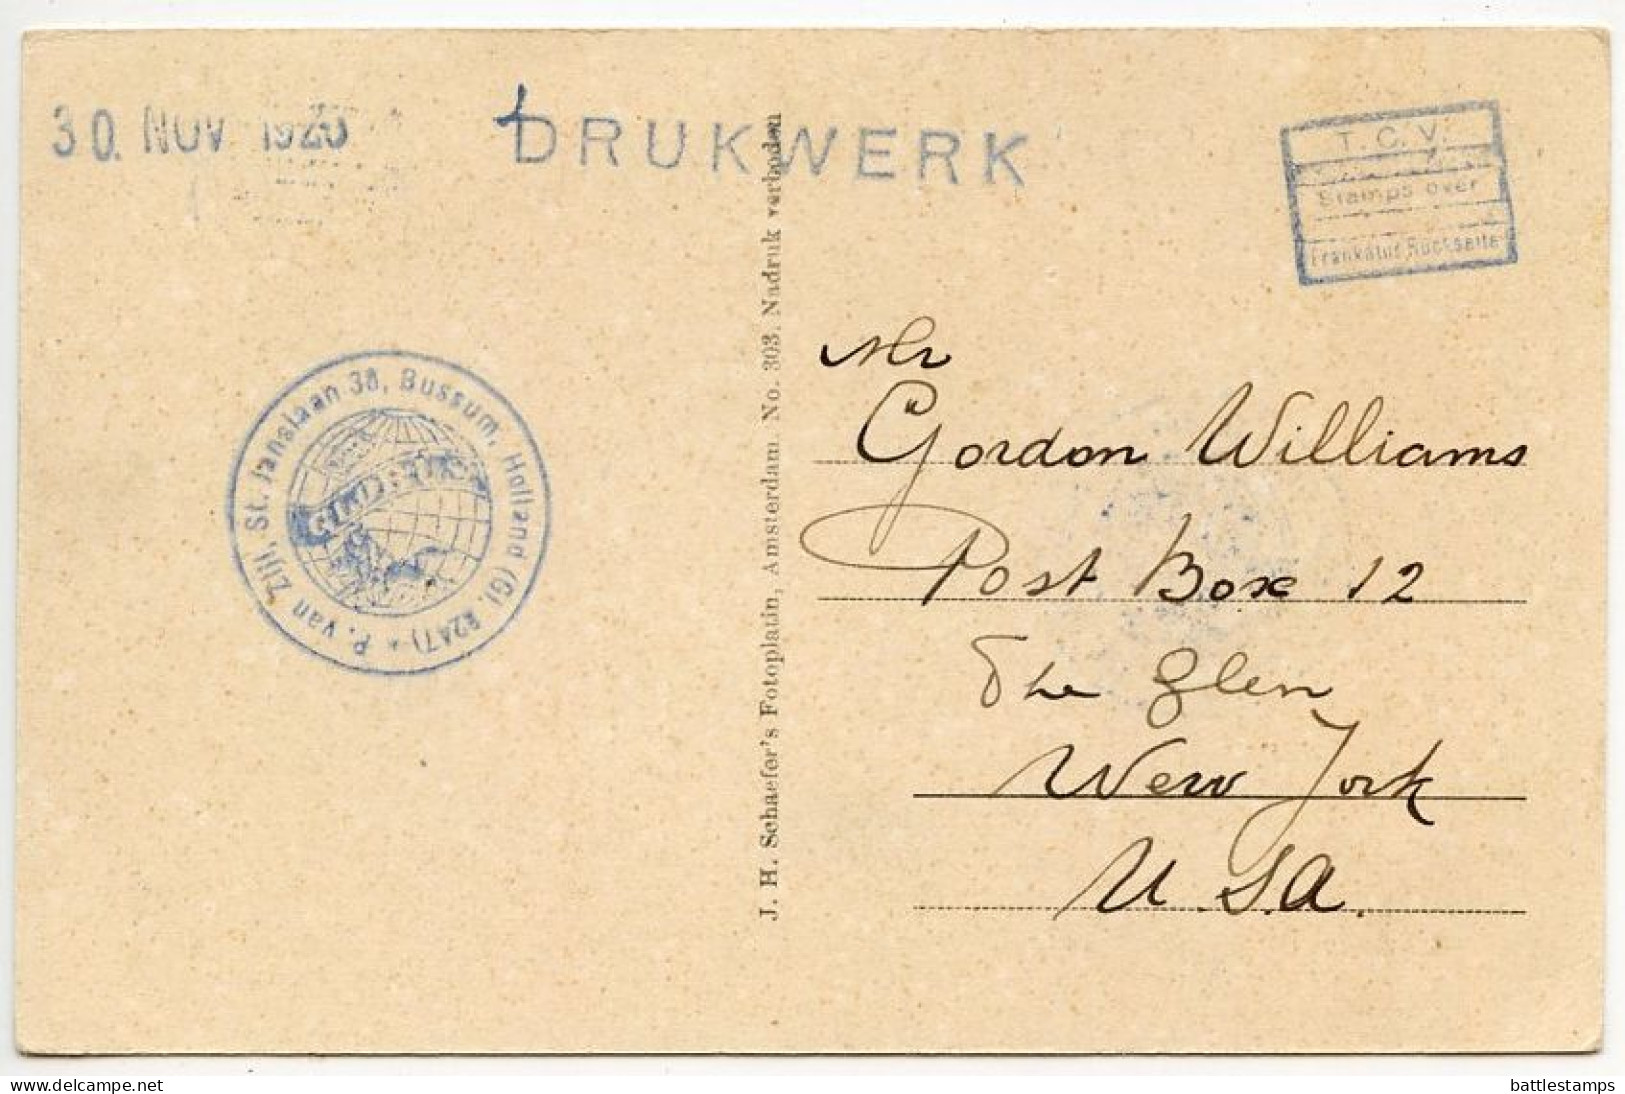 30. NOV 1920
DRUKWERK
T. C. V.
Stamps over
Frankatur Rückseite
P. van Zijl, St. Janslaan 38, Bussum, Holland (Gl. R2A7) *
GLOBETROTTER
J. H. Schaefer's Fotoplatin, Amsterdam. No. 303. Nadruk verboden
Mr
Gordon Williams
Post Boxe 12
The Glen
New York
U.S.A.
delcampe.net
battlestamps